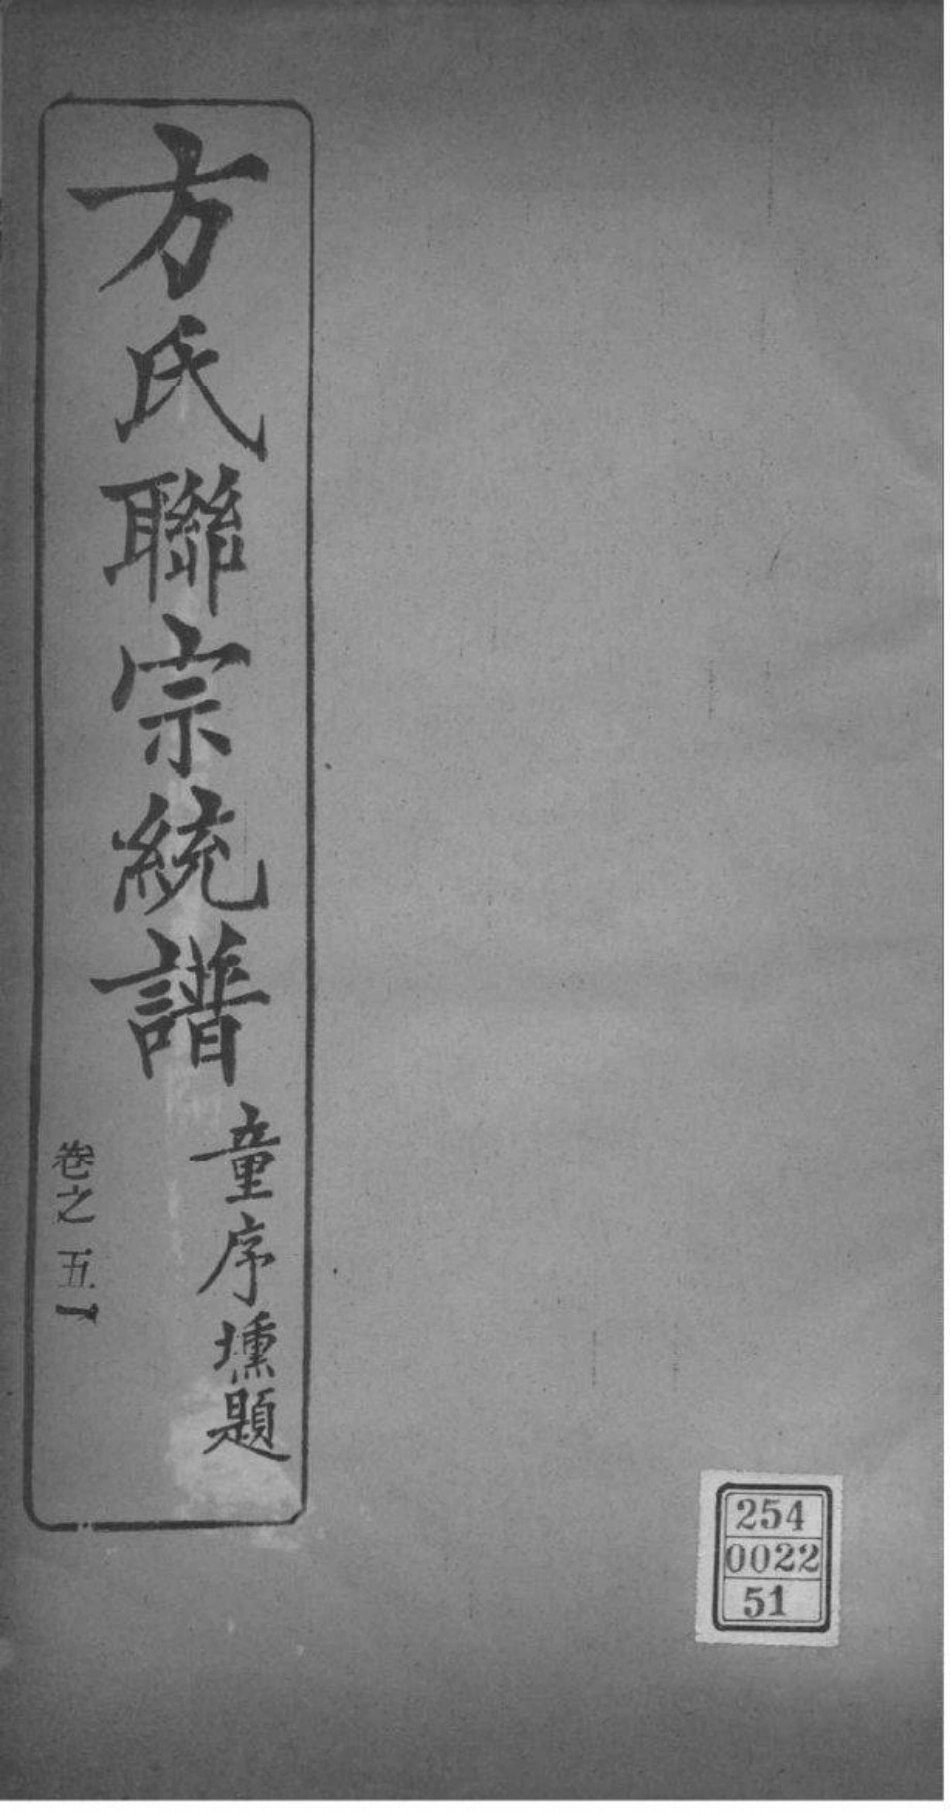 方氏聯宗統譜
童序壎題
卷之五一
254
0022
51